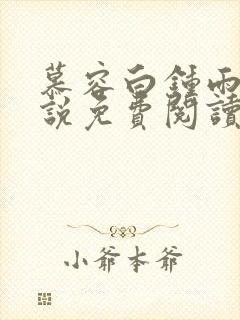 慕容白鍾雨
說免費閱讀
小爺本爺